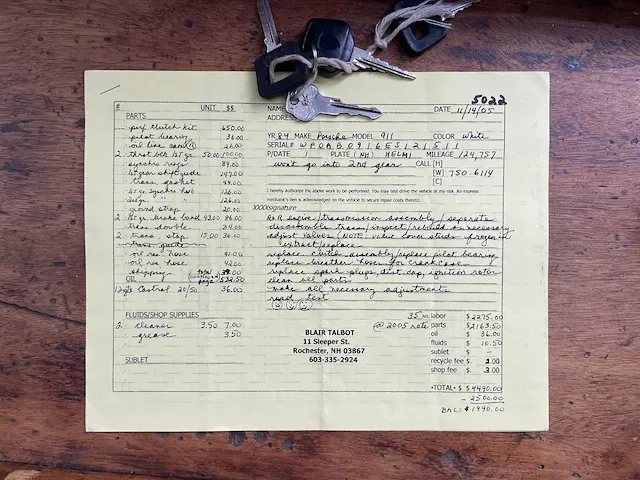 5022
# UNIT $$ NAME DATE 11/14/05
PARTS ADDRESS
perf clutch kit 650.00
pilot bearing 36.00
YR 84 MAKE Porsche MODEL 911 COLOR White
SERIAL# WP0AB0916ES121511
2 50.00 100.00
P/DATE 1 PLATE (NH) HELMI MILEAGE 124,757
synchro rings
wont go into 2nd gear CALL [H]
1st gear shift guide 147.00
[W] 750-6114
trans. gasket 49.00
[C]
1st gr. synchro hub 126.00
I hereby authorize the above work to be performed. You may test drive the vehicle at my risk. An express
126.00
mechanic's lien is acknowledged on the vehicle to secure repair costs thereto.
ground strap 20.00
XXXXsignature
2 1st gr. brake band 43.00 86.00
R+R engine/transmission assembly/seperate
34.00
disassemble trans/inspect/rebuild as necessary
2 trans. stop 15.00 30.00
adjust valves (NOTE: valve cover studs frozen in
trans guide
extract/replace
oil res hose 41.00
replace clutch assembly/replace pilot bearing
oil res hose 42.00
replace breather hoses for crankcase
shipping
replace spark plugs, dist cap, ignition rotor
OIL
clean all parts
12 qts Castrol 20/50 36.00
make all necessary adjustments
road test
FLUIDS/SHOP SUPPLIES
35 hrs labor $2275.00
2 cleaner 3.50 7.00
@ 2005 rate parts $2163.50
grease 3.50
oil $ 36.00
BLAIR TALBOT
fluids $ 10.50
11 Sleeper St.
sublet $ -
Rochester, NH 03867
SUBLET
recycle fee $ 2.00
603-335-2924
shop fee $ 3.00
*TOTAL* $ $4490.00
- 2500.00
BAL: $1990.00